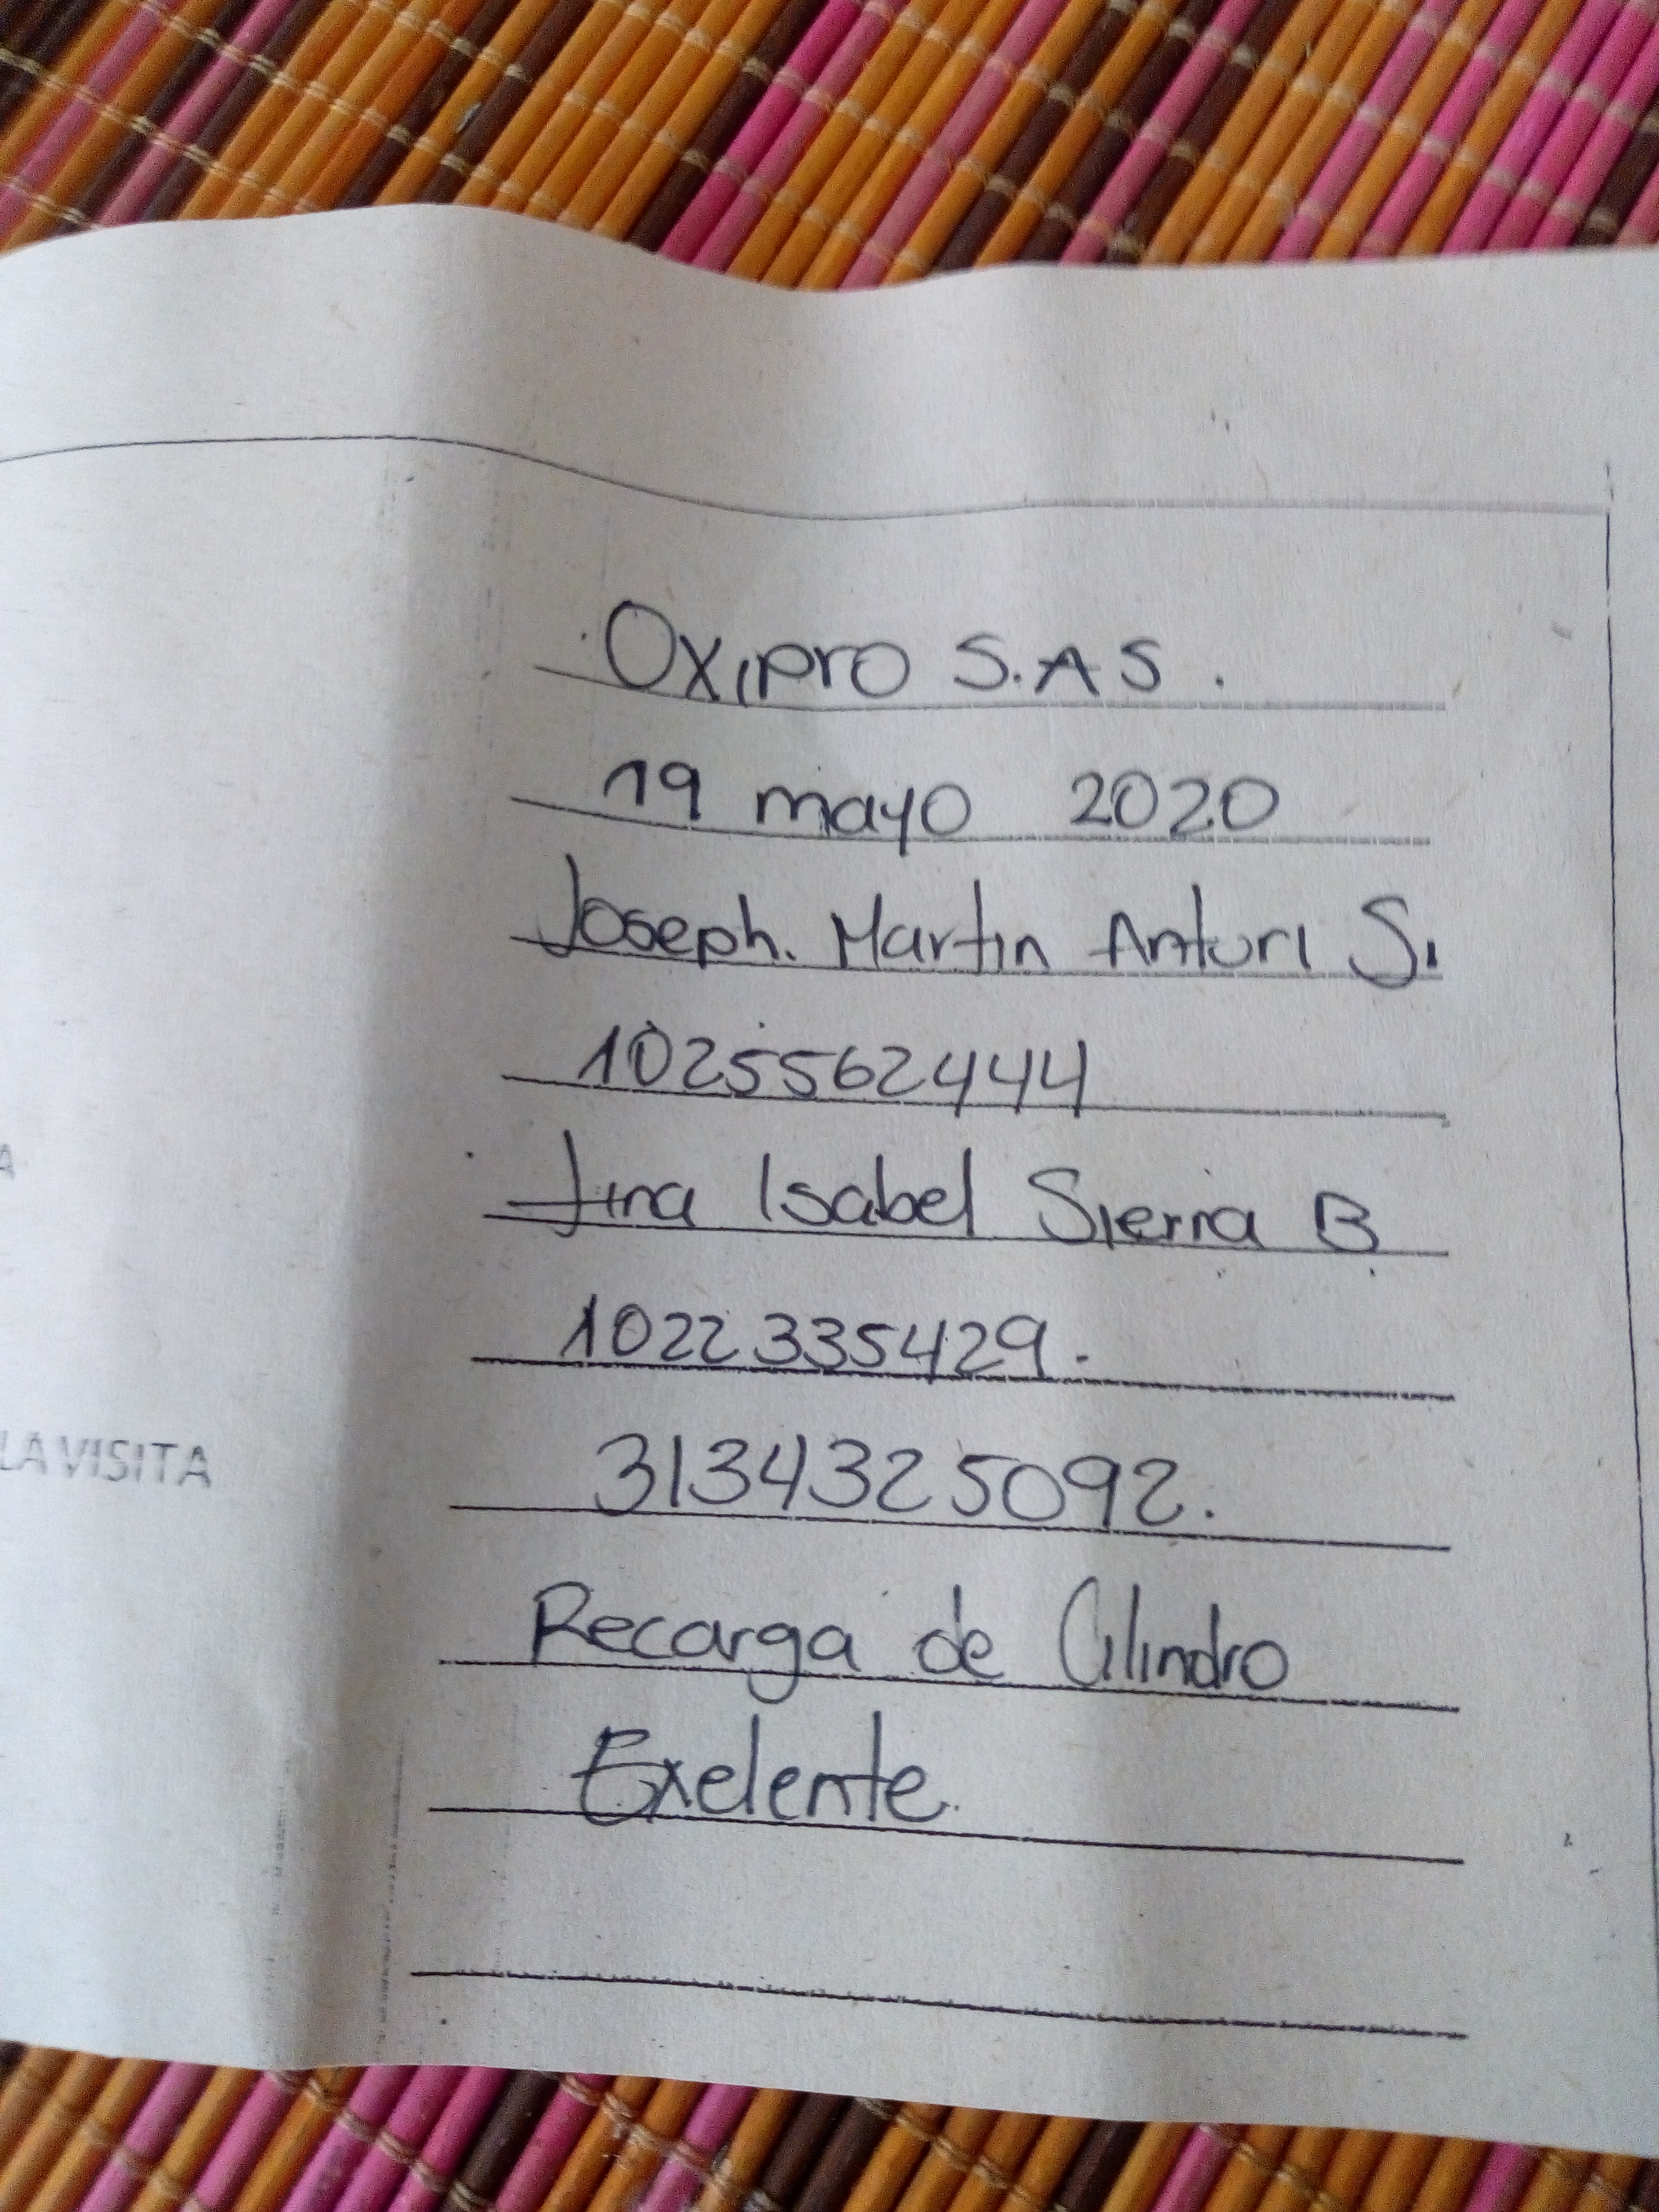 Oxipro S.A.S.
19 mayo 2020
Joseph. Martin Anturi S.
1025562444
A
Jina Isabel Sierra B
1022335429.
LA VISITA
3134325092.
Recarga de Cilindro
Exelente.